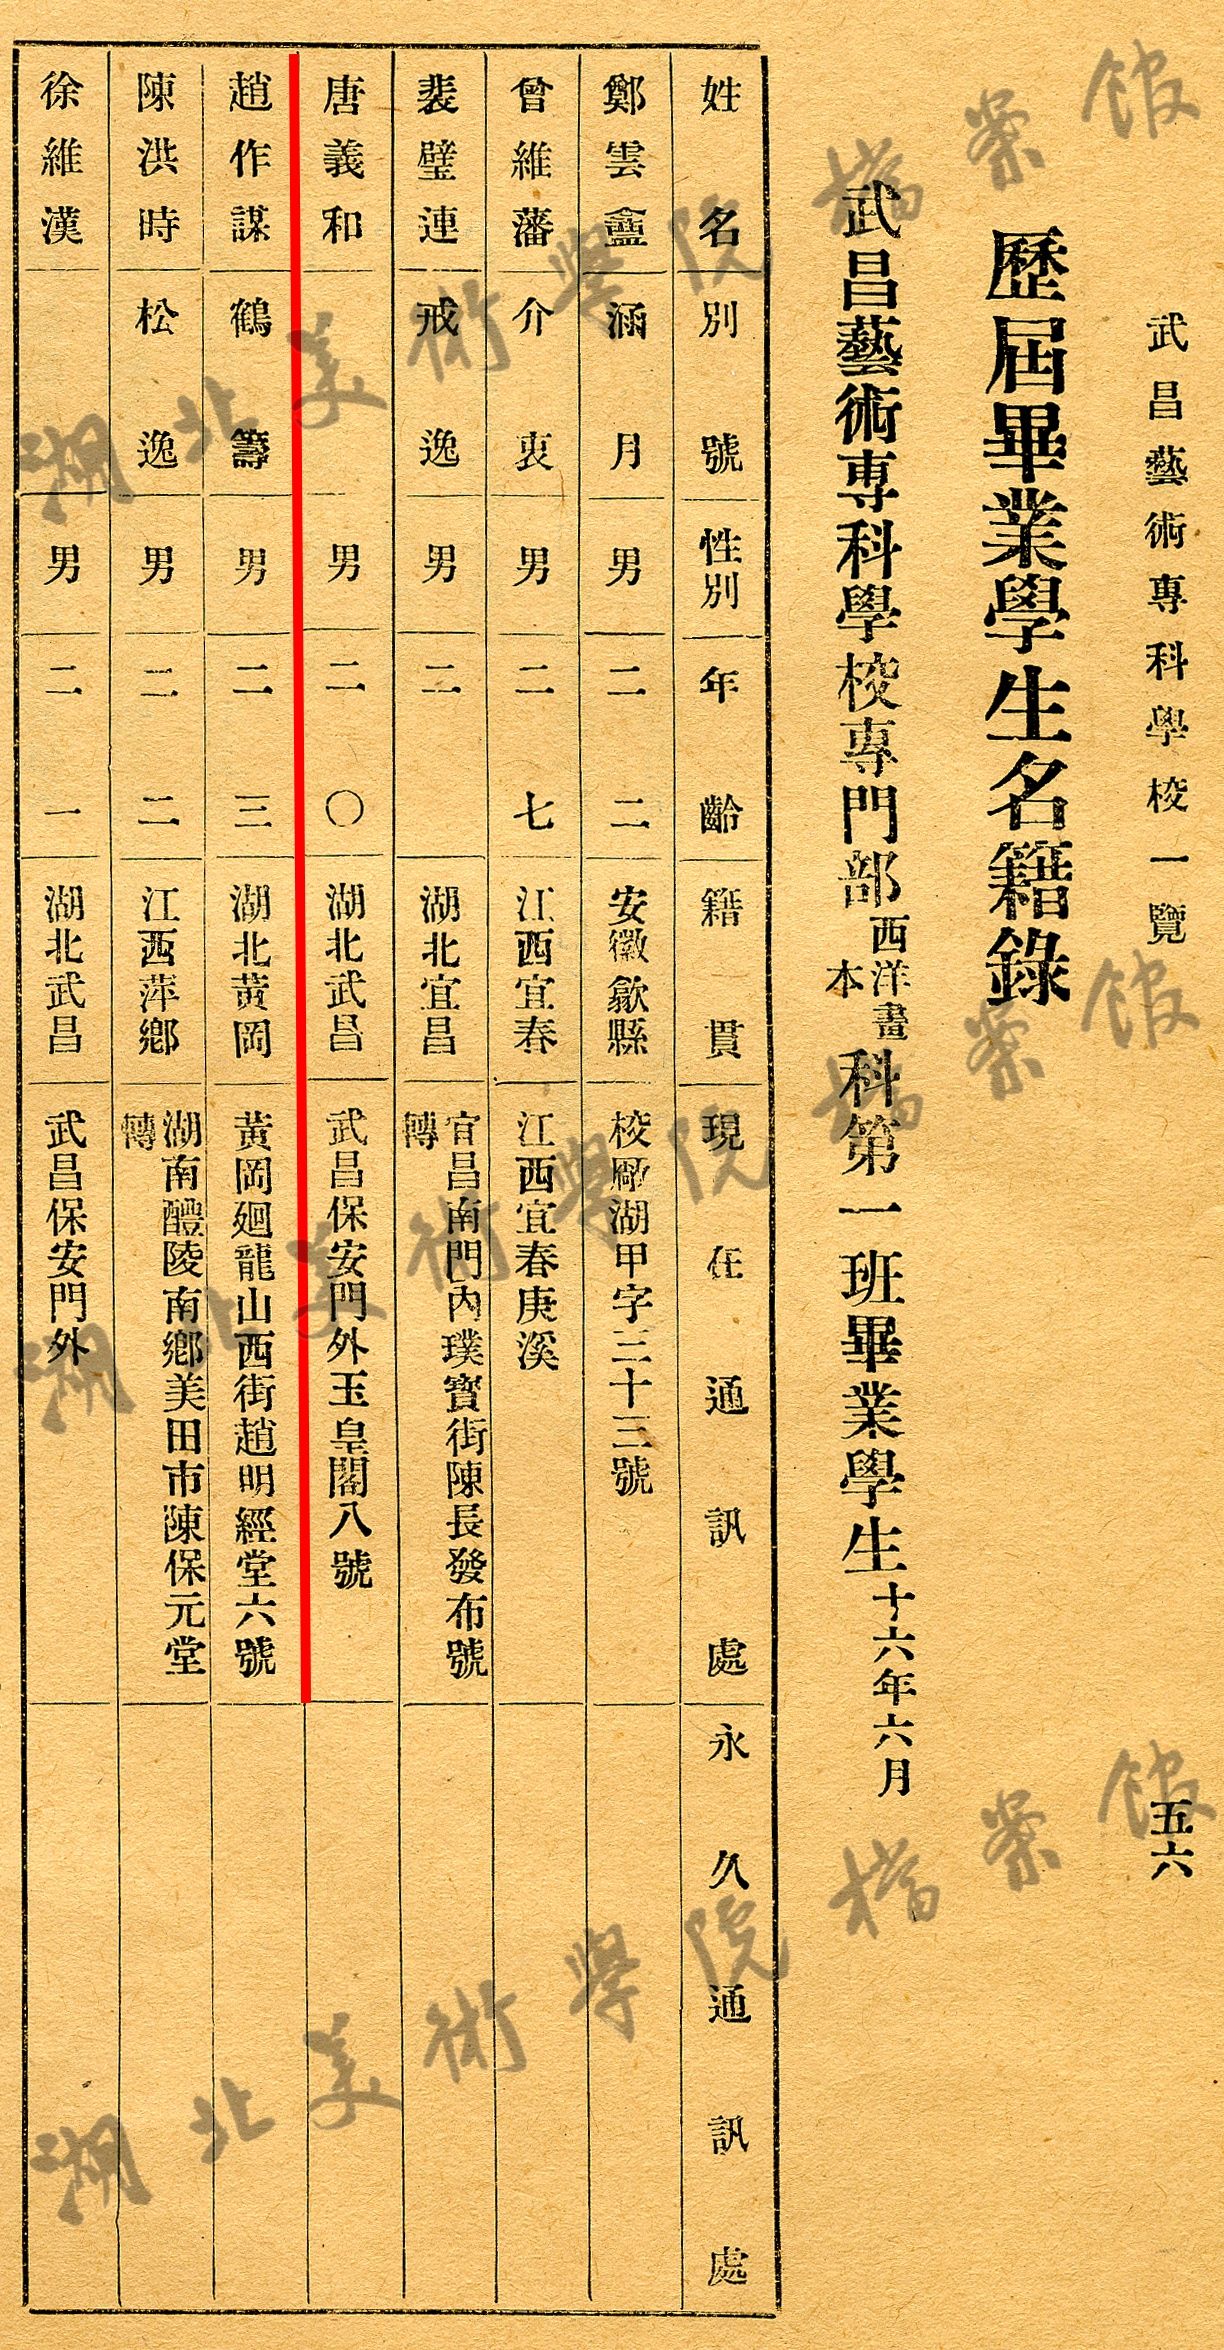 武昌藝術專科學校一覽
五六
歷屆畢業學生名籍錄
武昌藝術專科學校專門部西洋畫本科第一班畢業學生十六年六月
姓名 別號 性別 年齡 籍貫 現在通訊處 永久通訊處
鄭雲𥂖 涵月 男 二二 安徽歙縣 校廠湖甲字三十三號
曾維藩 介衷 男 二七 江西宜春 江西宜春庚溪
裴璧連 戒逸 男 二 湖北宜昌 宜昌南門內璞寶街陳長發布號轉
唐義和 男 二〇 湖北武昌 武昌保安門外玉皇閣八號
趙作謀 鶴籌 男 二三 湖北黃岡 黃岡廻龍山西街趙明經堂六號
陳洪時 松逸 男 二二 江西萍鄉 湖南醴陵南鄉美田市陳保元堂轉
徐維漢 男 二一 湖北武昌 武昌保安門外
湖北美術學院檔案館
湖北美術學院檔案館
湖北美術學院檔案館